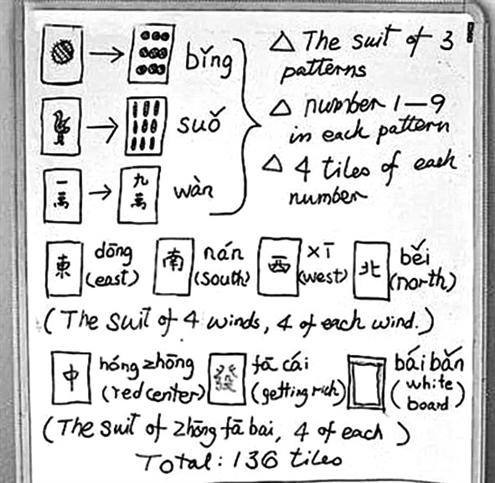 bǐng
suǒ
一萬 九萬 wàn
△ The suit of 3
patterns
△ number 1—9
in each pattern
△ 4 tiles of each
number
東 dōng 南 nán 西 xī 北 běi
(east) (south) (west) (north)
(The suit of 4 winds, 4 of each wind.)
中 hóng zhōng 發 fā cái bái bǎn
(red center) (getting rich) (white
board)
(The suit of zhōng fā bai, 4 of each)
Total: 136 tiles